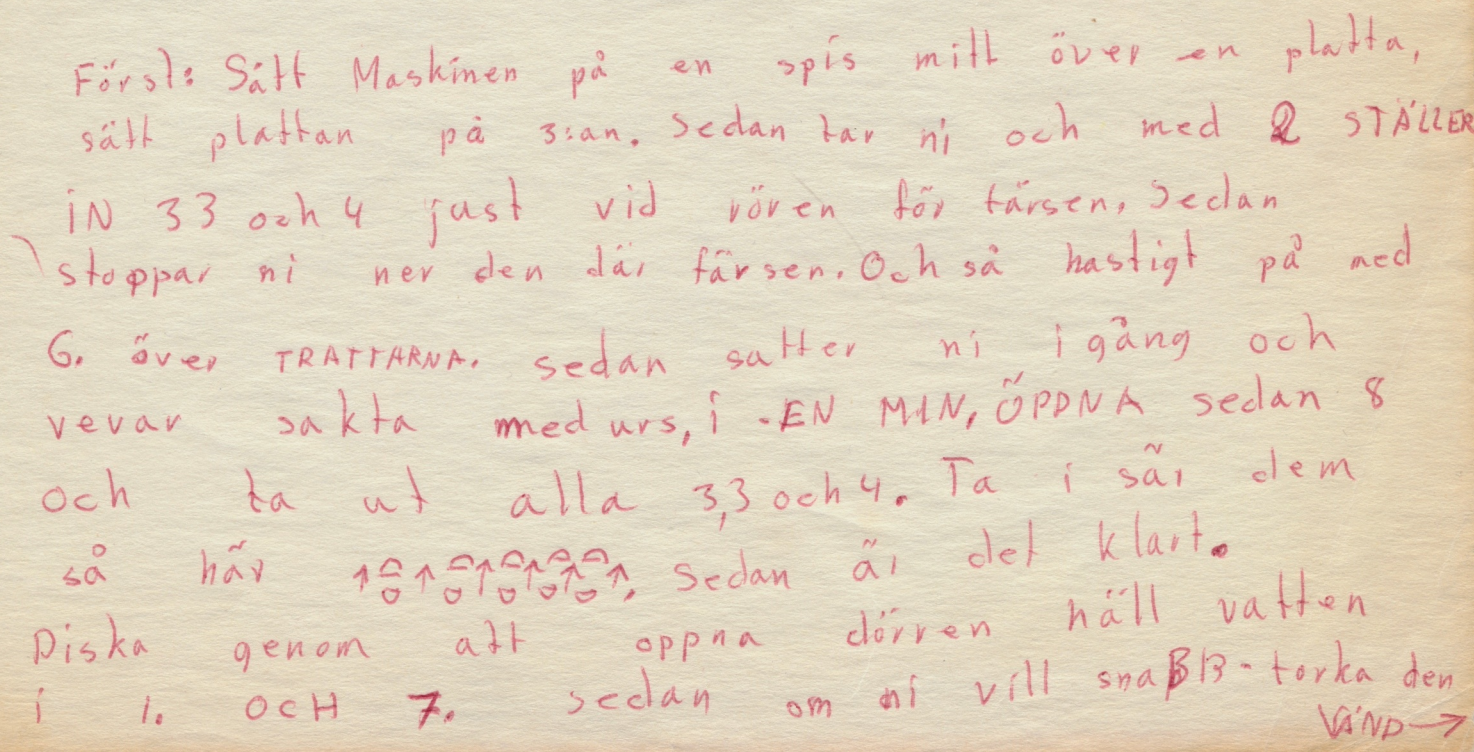 Först: Sätt Maskinen på en spis mitt över en platta,
sätt plattan på 3:an. Sedan tar ni och med 2 STÄLLER
IN 33 och 4 just vid rören för färsen. Sedan
stoppar ni ner den där färsen. Och så hastigt på med
6. över TRATTARNA. sedan satter ni igång och
vevar sakta medurs, i -EN MIN, ÖPPNA sedan 8
och ta ut alla 3,3 och 4. Ta i sär dem
så här ↑ ↑ ↑ ↑ ↑ ↑. Sedan är det klart.
Diska genom att oppna dörren häll vatten
i 1. OCH 7. sedan om ni vill snaBB-torka den
VÄND→